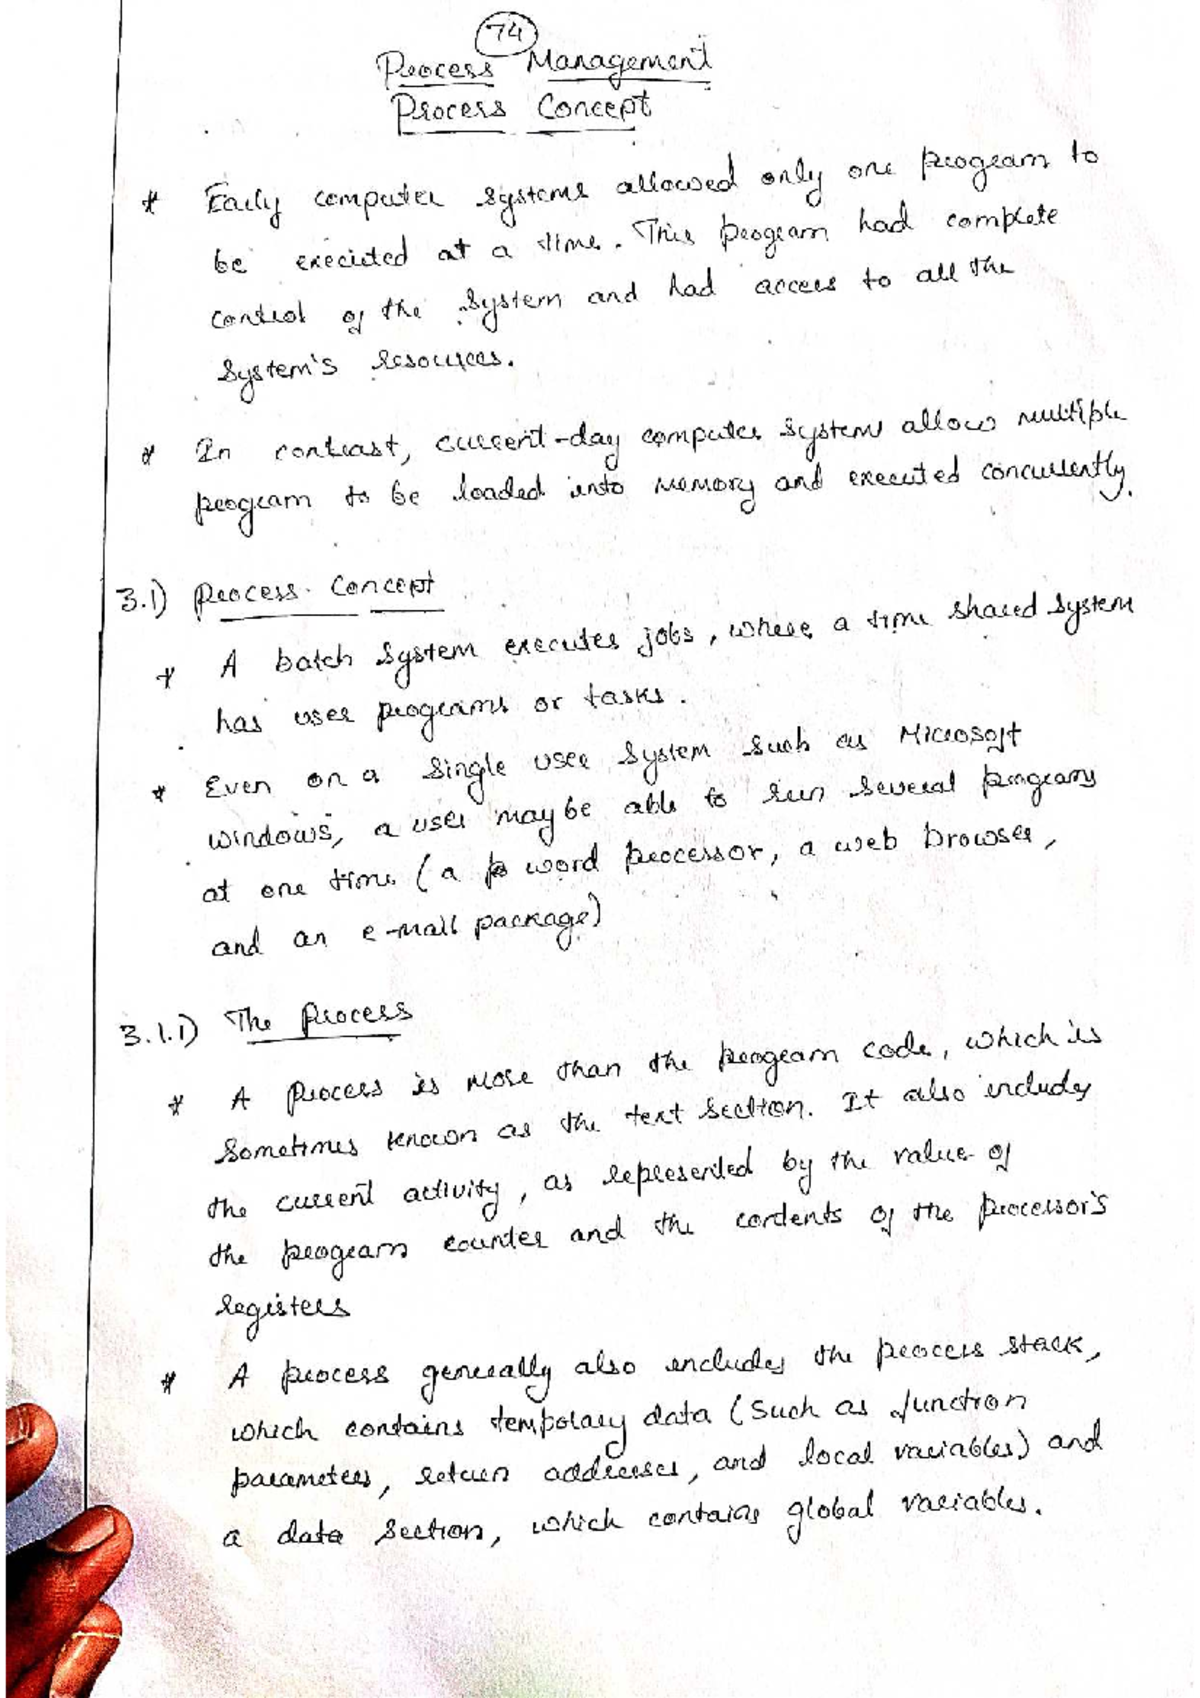 74
Process Management
Process Concept
* Early computer systems allowed only one program to
be executed at a time. This program had complete
control of the system and had access to all the
system's resources.
* In contrast, current-day computer systems allow multiple
program to be loaded into memory and executed concurrently.
3.1) Process Concept
* A batch system executes jobs, where a time shared system
has user programs or tasks.
* Even on a single user system such as Microsoft
windows, a user may be able to run several programs
at one time (a word processor, a web browser,
and an e-mail package)
3.1.1) The Process
* A Process is more than the program code, which is
sometimes known as the text section. It also includes
the current activity, as represented by the value of
the program counter and the contents of the processor's
registers
* A process generally also includes the process stack,
which contains temporary data (such as function
parameters, return addresses, and local variables) and
a data section, which contains global variables.